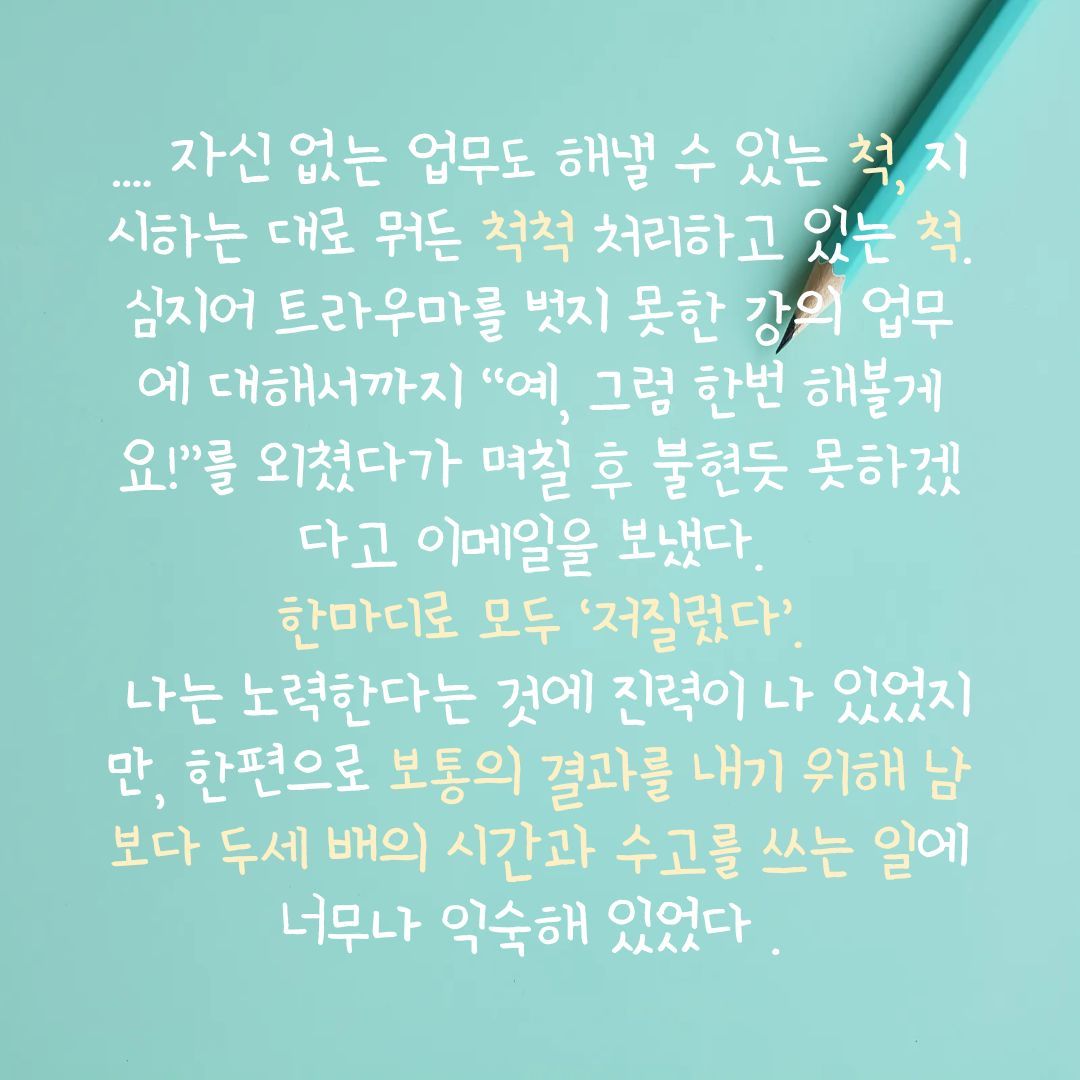 .... 자신 없는 업무도 해낼 수 있는 척, 지
시하는 대로 뭐든 척척 처리하고 있는 척.
심지어 트라우마를 벗지 못한 강의 업무
에 대해서까지 “예, 그럼 한번 해볼게
요!”를 외쳤다가 며칠 후 불현듯 못하겠
다고 이메일을 보냈다.
한마디로 모두 ‘저질렀다’.
나는 노력한다는 것에 진력이 나 있었지
만, 한편으로 보통의 결과를 내기 위해 남
보다 두세 배의 시간과 수고를 쓰는 일에
너무나 익숙해 있었다 .